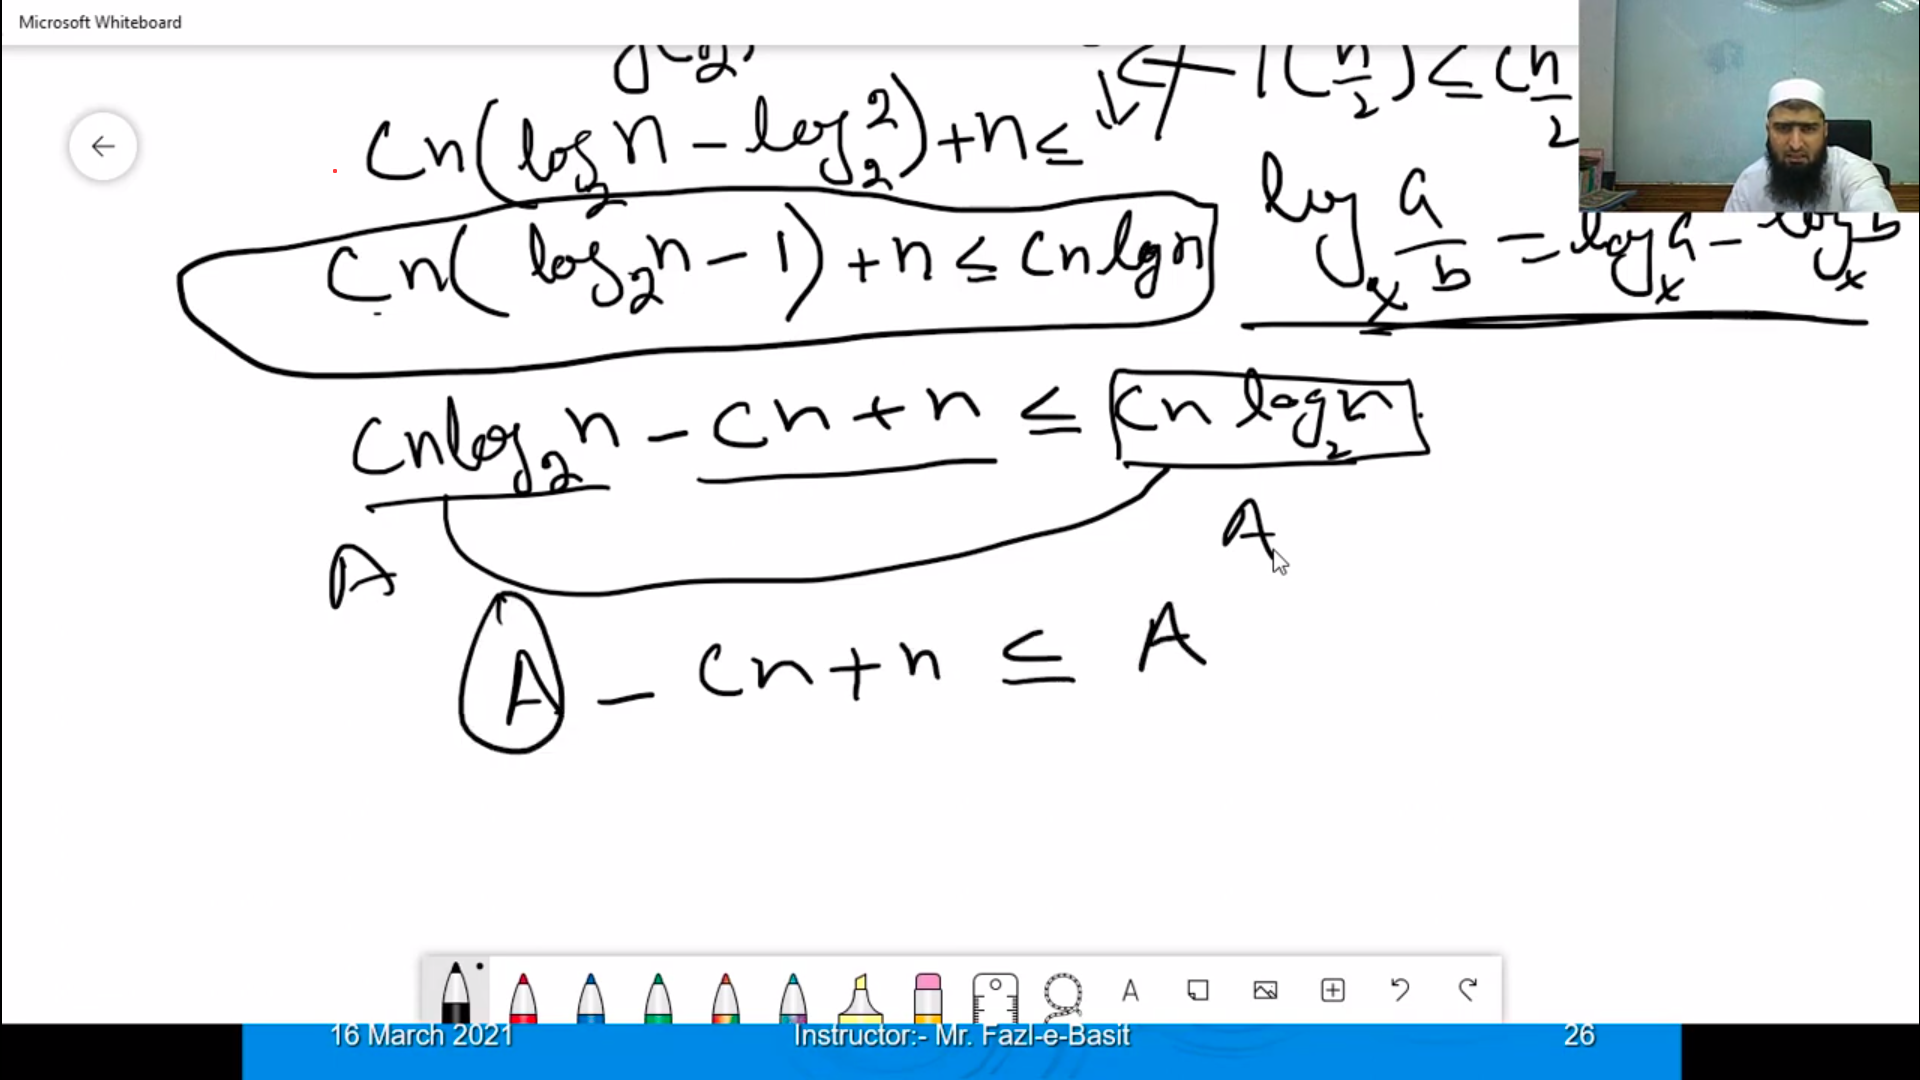 Microsoft Whiteboard
Cn(log₂n - log₂2) + n ≤
Cn(log₂n - 1) + n ≤ Cn lg n
logₓ a/b = logₓ a - logₓ b
Cn log₂ n - Cn + n ≤ Cn log₂ n
A
A
A - Cn + n ≤ A
16 March 2021
Instructor:- Mr. Fazl-e-Basit
26